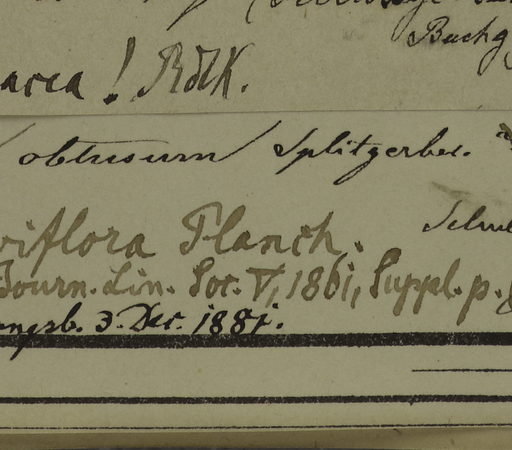 Buchg
arca! Rdlk.
obtusum Splitgerber.
viflora Planch.
Journ. Lin. Soc. V, 1861, Suppl. p.
ngsb. 3. Dec. 1881.